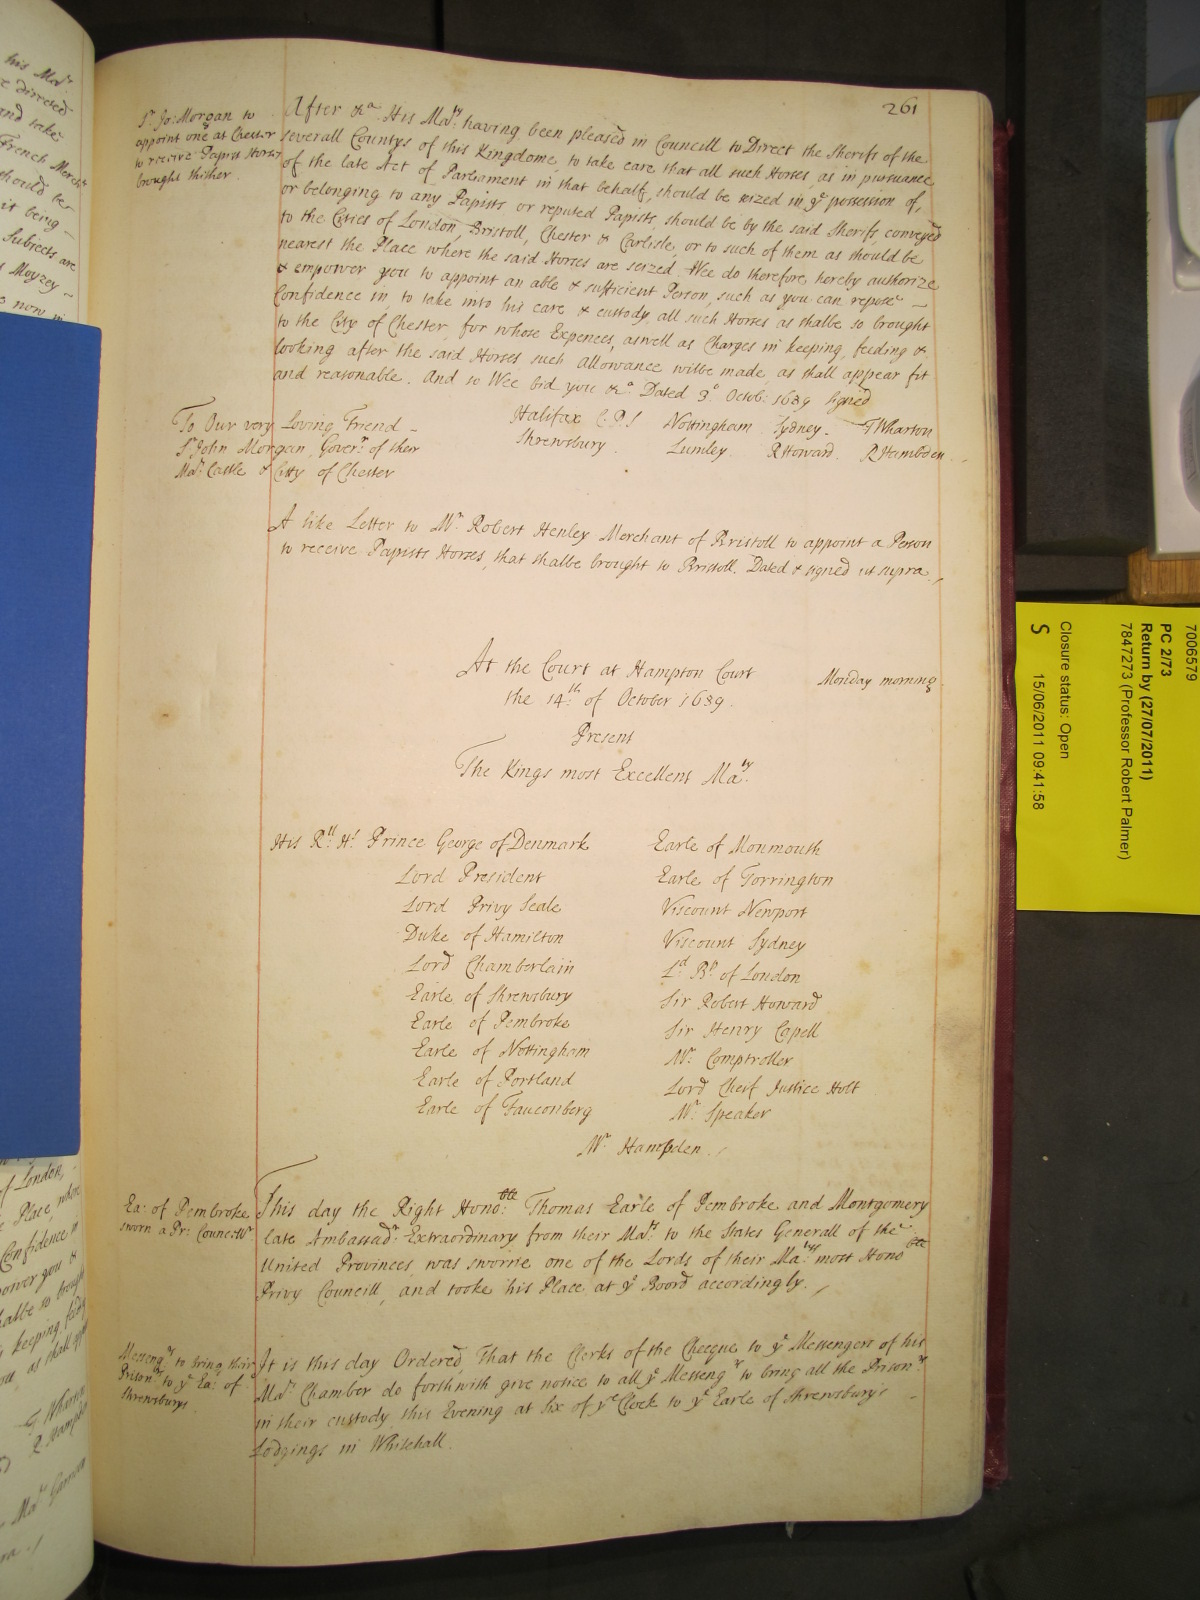 261
Sr. Jo: Morgan to
appoint one at Chester
to receive Papist Horses
brought thither.
After &ca. His Maty. having been pleased in Councill to Direct the Sherifs of the
severall Countys of this Kingdome, to take care that all such Horses, as in pursuance
of the late Act of Parliament in that behalf, should be seized in ye possession of,
or belonging to any Papists or reputed Papists, should be by the said Sherifs, conveyed
to the Cities of London, Bristoll, Chester & Carlisle, or to such of them as should be
nearest the Place where the said Horses are seized. Wee do therefore hereby authorize
& empower you to appoint an able & sufficient Person, such as you can repose
Confidence in, to take into his care & custody, all such Horses as shalbe so brought
to the City of Chester, for whose Expences, aswell as Charges in keeping, feeding &
looking after the said Horses such allowance wilbe made, as shall appear fit
and reasonable. And so Wee bid you &a. Dated 3o. Octob: 1689 signed
To Our very Loving Friend
Sr. John Morgan, Goverr. of their
Mats. Castle & Citty of Chester
Halifax C.P.S Nottingham Sydney. T Wharton
Shrewsbury Lumley. R Howard. R Hambden
A like Letter to Mr. Robert Henley Merchant of Bristoll to appoint a Person
to receive Papists Horses, that shalbe brought to Bristoll. Dated & signed ut supra
At the Court at Hampton Court
the 14th. of October 1689.
Monday morning
Present
The Kings most Excellent Maty.
His Rll. Hs. Prince George of Denmark
Lord President
Lord Privy Seale
Duke of Hamilton
Lord Chamberlain
Earle of Shrewsbury
Earle of Pembroke
Earle of Nottingham
Earle of Portland
Earle of Fauconberg
Earle of Monmouth
Earle of Torrington
Viscount Newport
Viscount Sydney
Ld. Bp. of London
Sir Robert Howard
Sir Henry Capell
Mr. Comptroller
Lord Cheif Justice Holt
Mr. Speaker
Mr. Hampden
Ea: of Pembroke
sworn a Pr: Councellr
This day the Right Honoble: Thomas Earle of Pembroke and Montgomery
late Ambassadr. Extraordinary from their Mats. to the States Generall of the
United Provinces was sworne one of the Lords of their Matys. most Honoble
Privy Councill, and tooke his Place at ye Boord accordingly.
Messengrs to bring their
Prisonrs to ye Ea: of
Shrewsburys
It is this day Ordered That the Clerks of the Checque to ye Messengers of his
Mats. Chamber do forthwith give notice to all ye Messengrs to bring all the Prisonrs
in their custody, this Evening at Six of ye Clock to ye Earle of Shrewsbury's
Lodgings in Whitehall.
7006579
PC 2/73
Return by (27/07/2011)
7847273 (Professor Robert Palmer)
Closure status: Open
S 15/06/2011 09:41:58